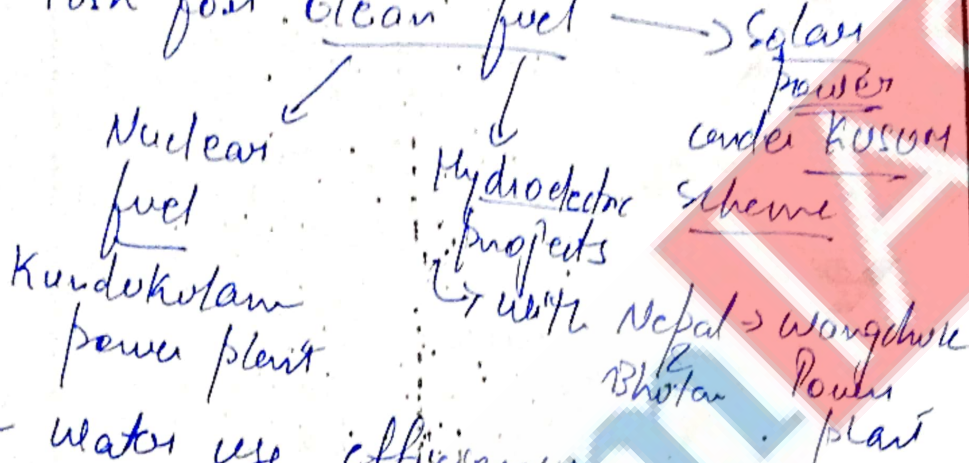 Push for clean fuel → Solar
power
under KUSUM
Scheme
Nuclear
fuel
Kundukolam
power plant.
Hydroelectric
projects
↳ with Nepal → Wangchuk
& Bhutan Power
plant
- Water use efficiency